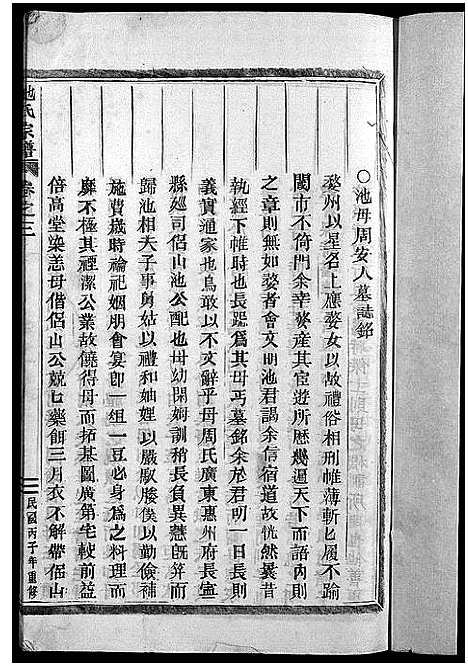 〇池母周安人墓誌銘
婺州以星名上應婺女以故禮俗相刑帷薄斬匕履不踰
閾市不倚門余幸婺產其宦遊所歷幾遍天下而語內則
之章則無如婺者會文明池君謁余信宿道故恍然曩昔
執經下帷時也長跽爲其母丐墓銘余於君明一日長則
義實通家也烏敢以不文辭乎母周氏廣東惠州府長寧
縣廵司侶山池公配也母幼閑姆訓稍長負異慧旣筓而
歸池相夫子事舅姑以禮和妯娌以嚴馭媵僕以勤儉補
施費歲時禴祀姻朋會宴卽一俎一豆必身爲之料理而
靡不極其禋潔公業故饒得母而拓基圖廣第宅較前益
倍高堂染恙母偕侶山公兢匕藥餌三月衣不解帶侶山
池氏宗譜 卷之三
民國丙子年重修